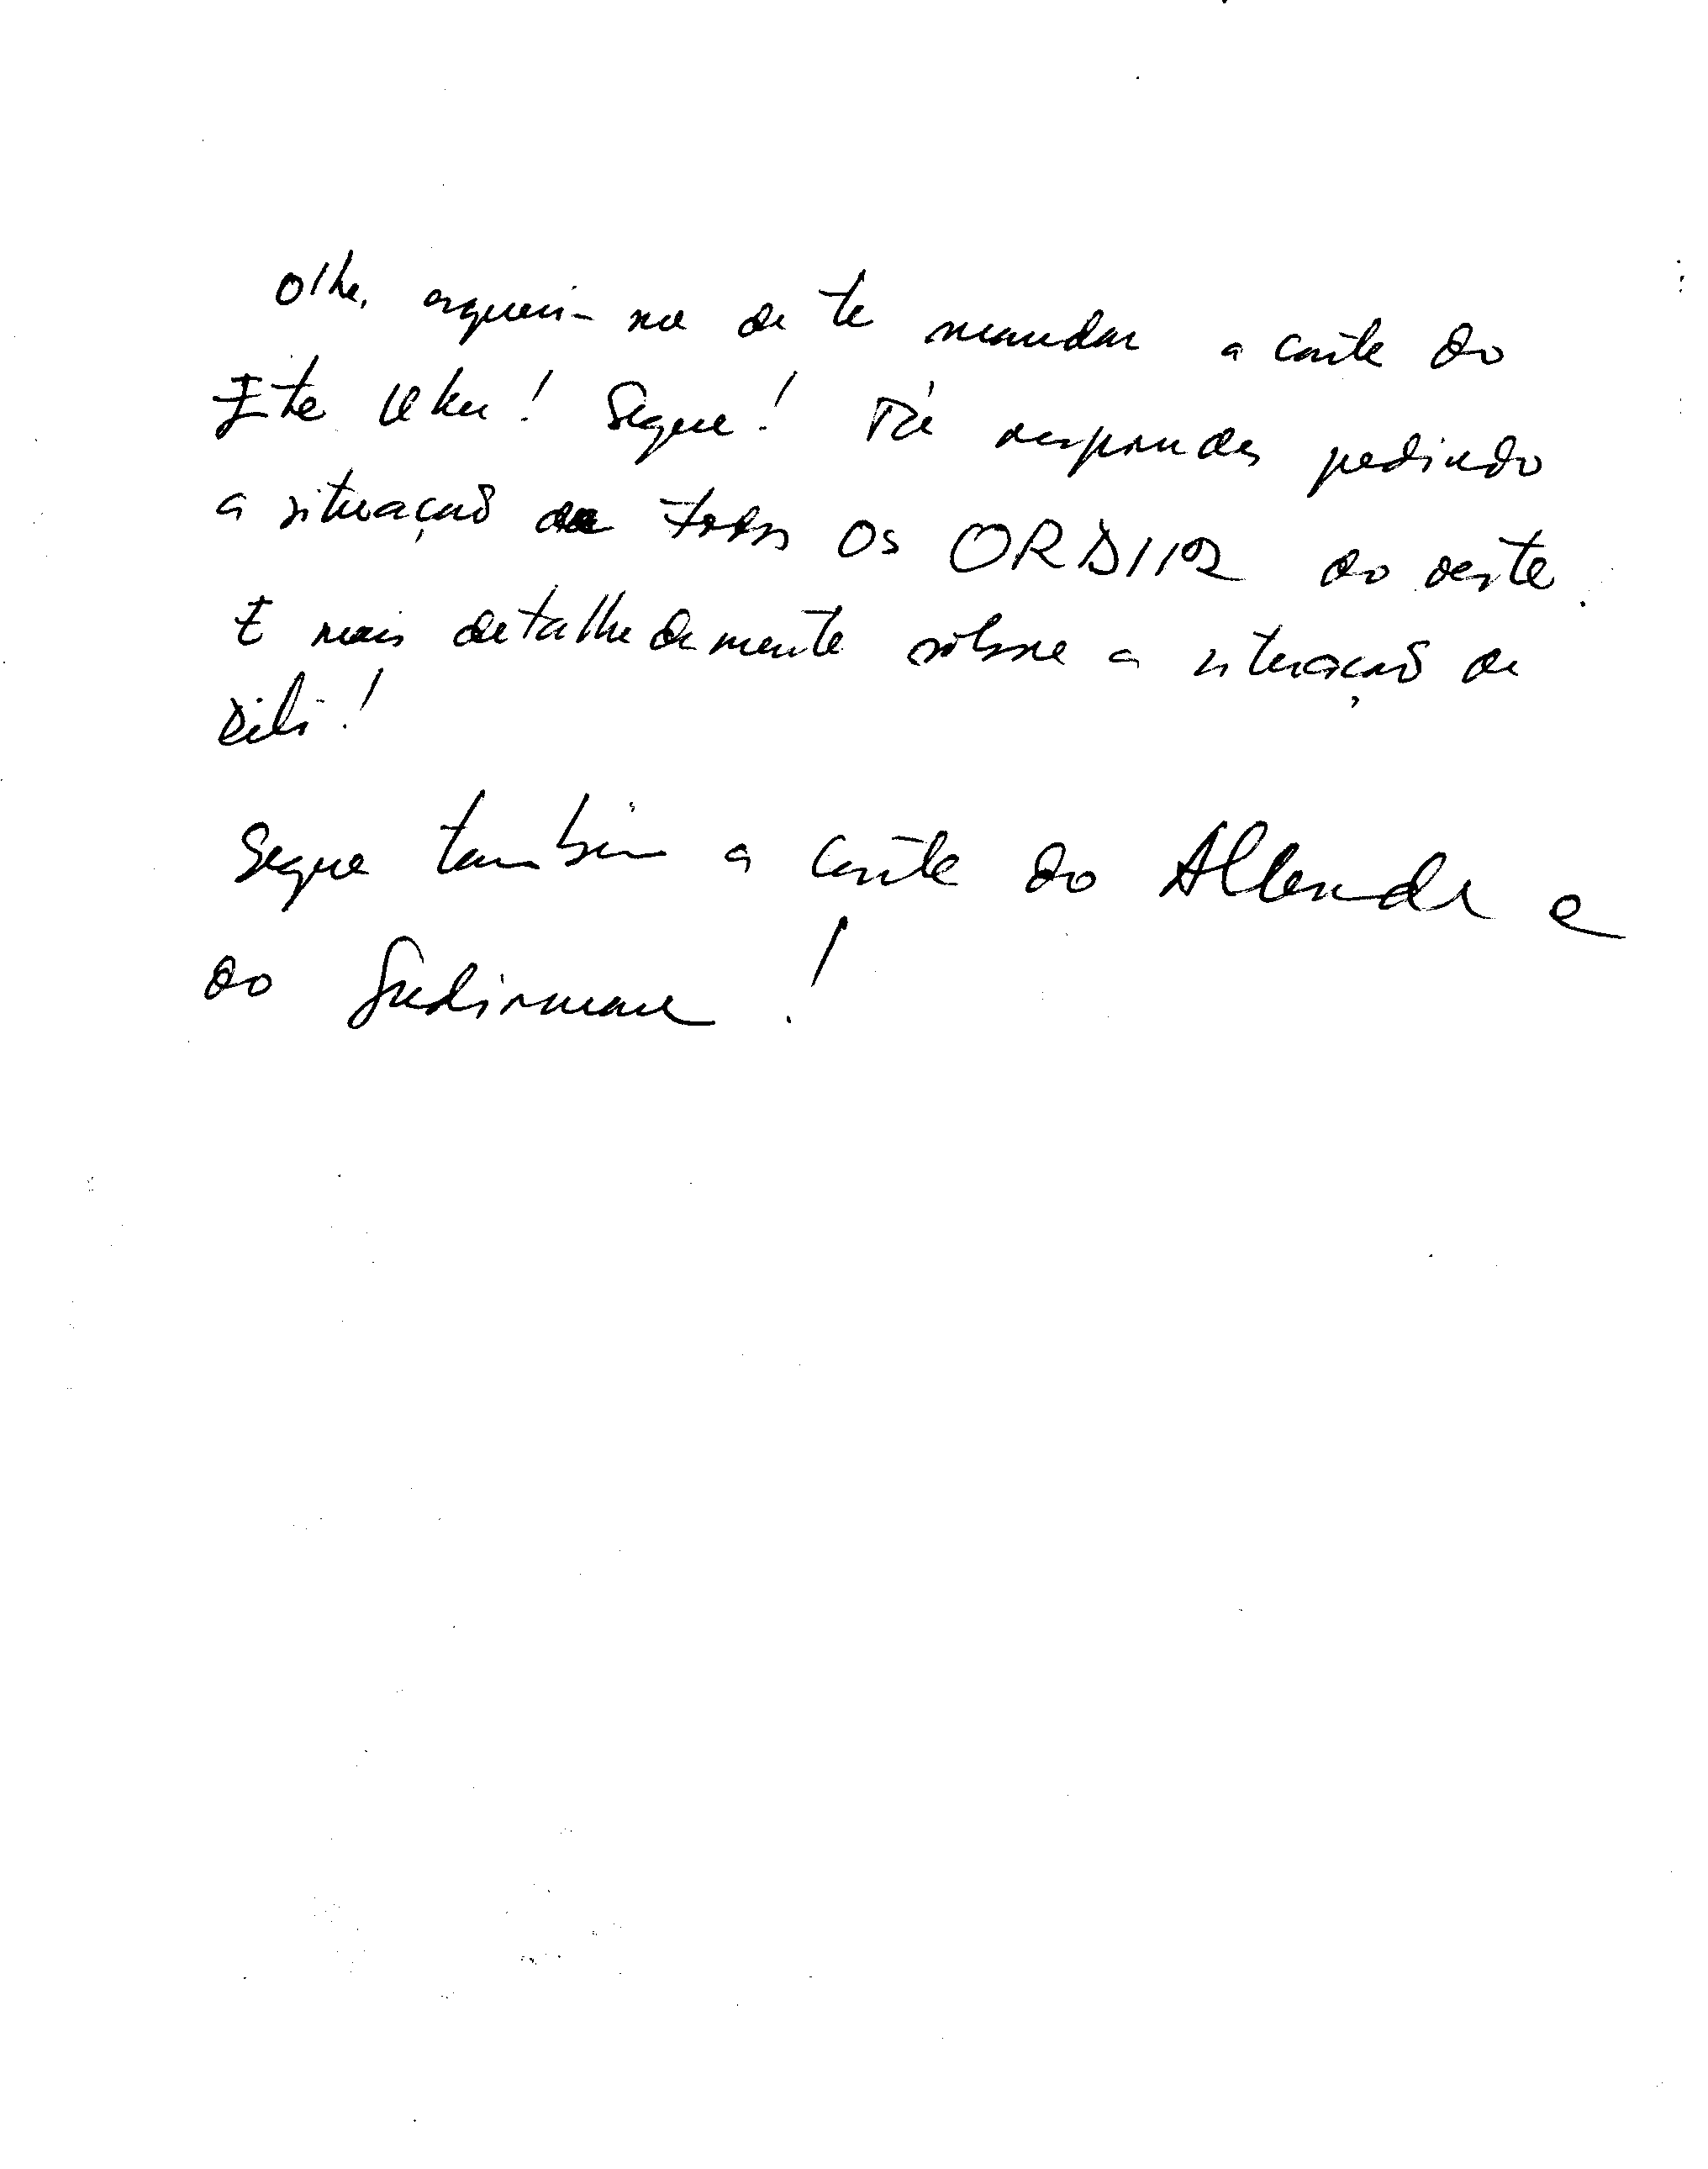 Olhe, esqueci-me de te mandar a carta do
Ete Uku! Segue! Já respondes pedindo
a situação de todos os do oeste.
E mais detalhadamente sôbre a situação de
Dili!
Segue também a carta do Allende e
do Sudirman!